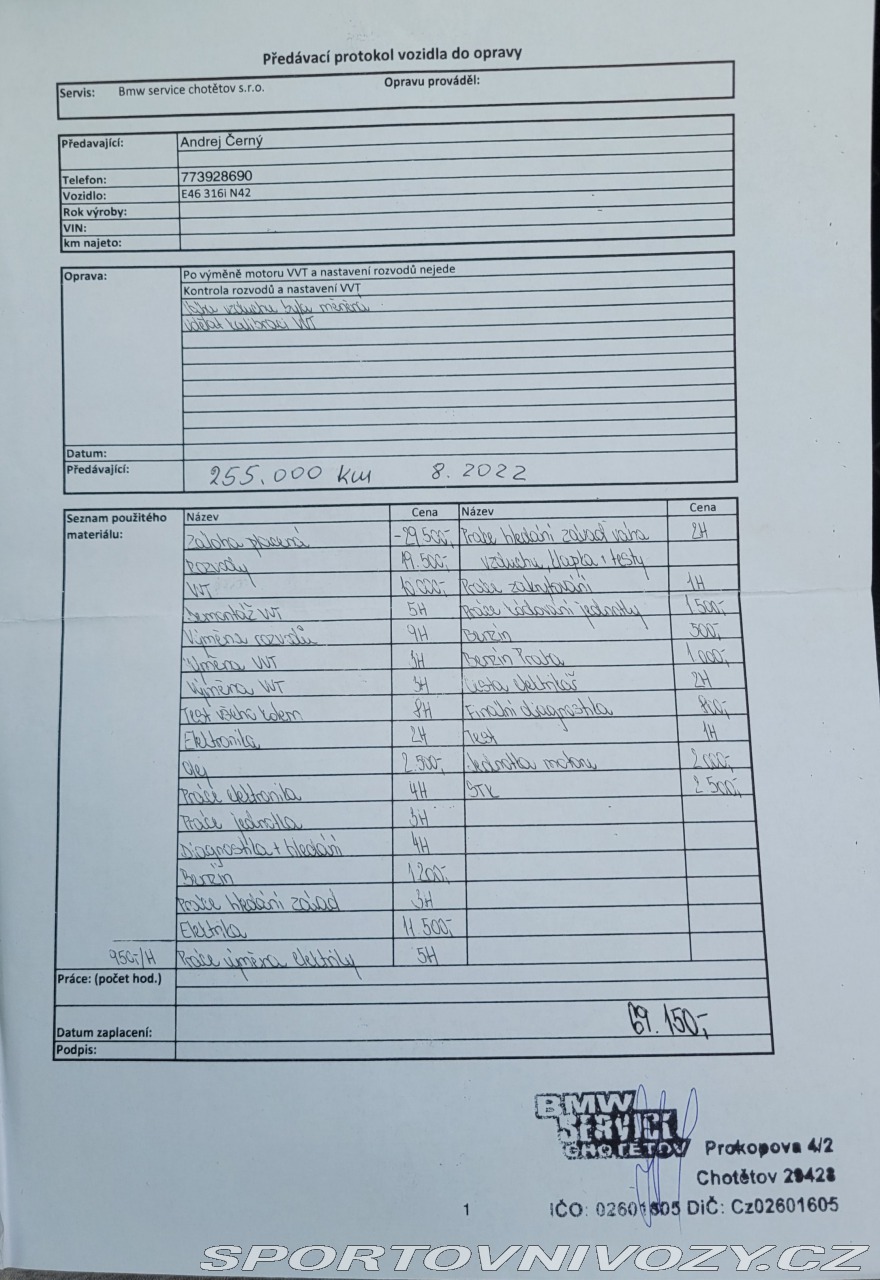 Předávací protokol vozidla do opravy
Servis: Bmw service chotětov s.r.o. Opravu prováděl:
Předavající: Andrej Černý
Telefon: 773928690
Vozidlo: E46 316i N42
Rok výroby:
VIN:
km najeto:
Oprava: Po výměně motoru VVT a nastavení rozvodů nejede
Kontrola rozvodů a nastavení VVT
vzduchu byla měněna
udělat kalibraci VVT
Datum:
Předávající: 255.000 km 8. 2022
Seznam použitého materiálu: Název Cena Název Cena
Záloha placená -29 500,- Práce hledání závad váha 2H
Rozvody 19.500,- vzduchu, klapka + testy
VVT 10 000,- Práce 1H
Demontáž VVT 5H Práce kódování jednotky 1 500,-
Výměna rozvodů 9H Benzín 500,-
Výměna VVT 3H Benzín Praha 1 000,-
Výměna VVT 3H Cesta elektrikář 2H
Test všeho kolem 8H Finální diagnostika 800,-
Elektronika 2H Test 1H
Olej 2.500,- Jednotka motoru 2 000,-
Práce elektronika 4H STK 2 500,-
Práce jednotka 3H
Diagnostika + hledání 4H
Benzín 1200,-
Práce hledání závad 3H
Elektrika 11 500,-
950,-/H Práce výměna elektriky 5H
Práce: (počet hod.)
Datum zaplacení: 69.150,-
Podpis:
BMW
SERVICE
CHOTĚTOV Prokopova 4/2
Chotětov 29428
1 IČO: 02601605 DIČ: Cz02601605
SPORTOVNIVOZY.CZ